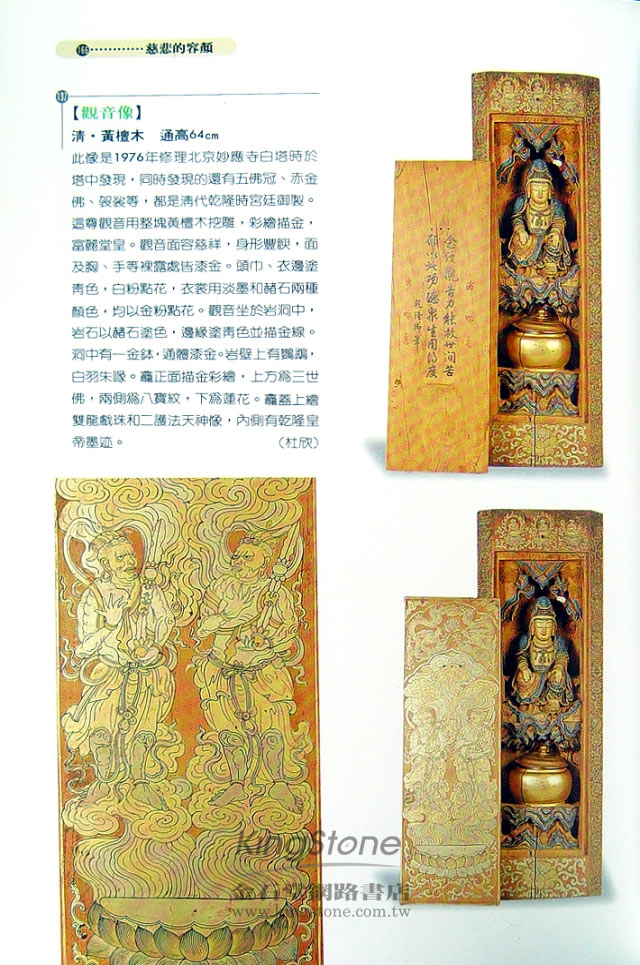 166 慈悲的容顏
187
【觀音像】
清・黃檀木 通高64cm
此像是1976年修理北京妙應寺白塔時於
塔中發現，同時發現的還有五佛冠、赤金
佛、袈裟等，都是清代乾隆時宮廷御製。
這尊觀音用整塊黃檀木挖雕，彩繪描金，
富麗堂皇。觀音面容慈祥，身形豐腴，面
及胸、手等裸露處皆漆金。頭巾、衣邊塗
靑色，白粉點花，衣裳用淡墨和赭石兩種
顏色，均以金粉點花。觀音坐於岩洞中，
岩石以赭石塗色，邊緣塗靑色並描金線。
洞中有一金鉢，通體漆金。岩壁上有鸚鵡，
白羽朱喙。龕正面描金彩繪，上方爲三世
佛，兩側爲八寶紋，下爲蓮花。龕蓋上繪
雙龍戲珠和二護法天神像，內側有乾隆皇
帝墨迹。 （杜欣）
念彼觀音力能救世間苦
願以此功德衆生同得度
乾隆御筆
KingStone
金石堂網路書店
www.kingstone.com.tw